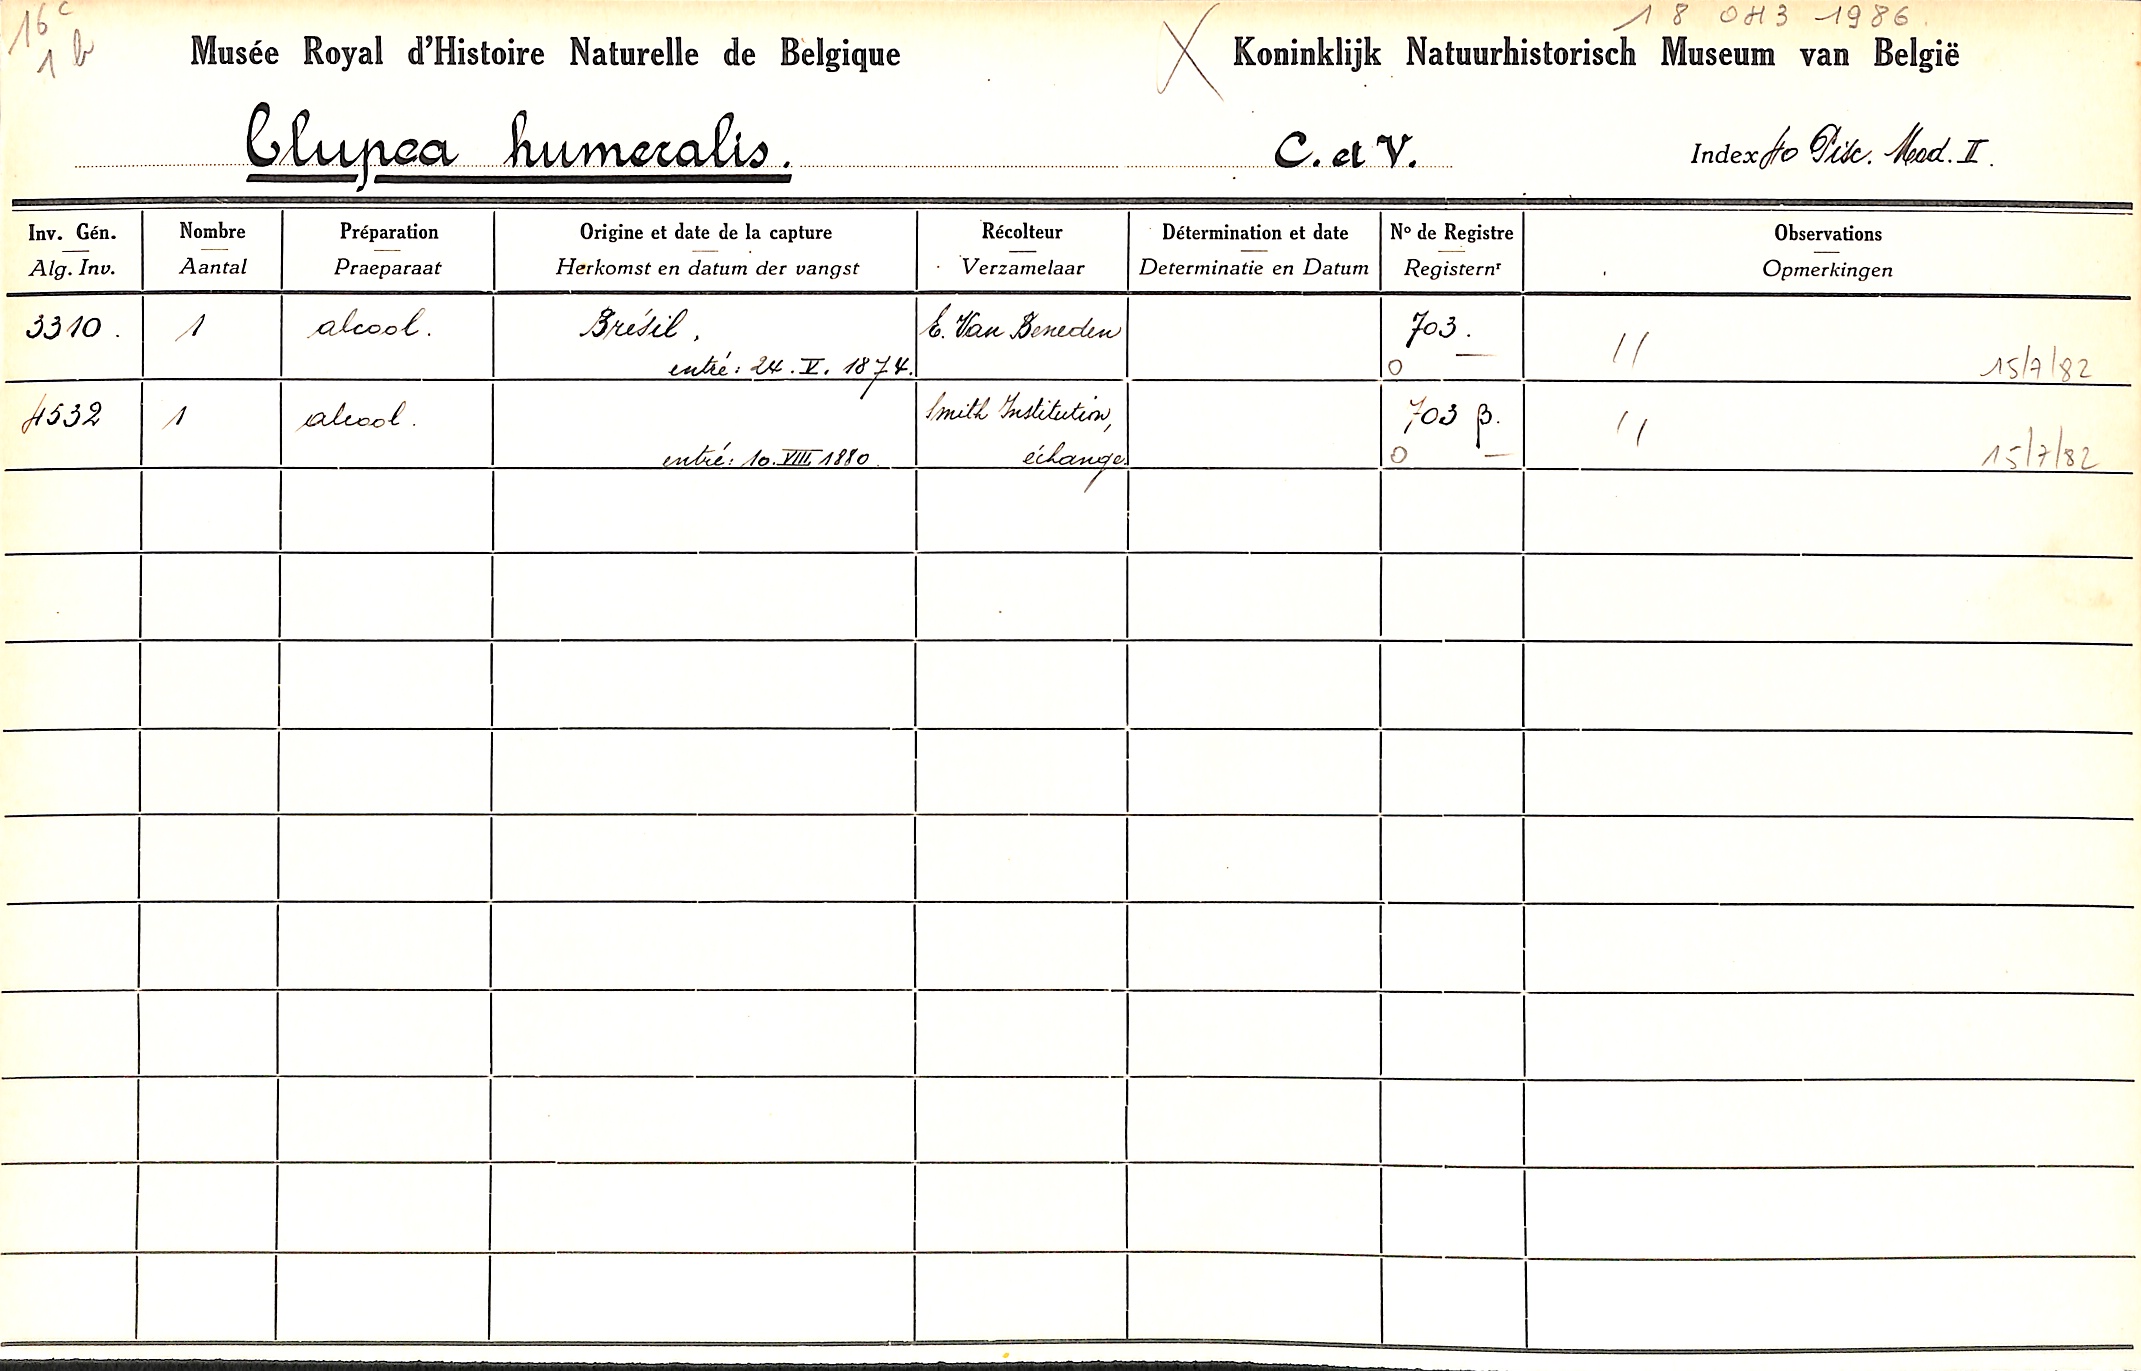 16 c
1 b
18 OKT 1986
Musée Royal d'Histoire Naturelle de Belgique
X
Koninklijk Natuurhistorisch Museum van België
Clupea humeralis.
C. et V.
Index 40 Pisc. Mod. II.
Inv. Gén. Nombre Préparation Origine et date de la capture Récolteur Détermination et date Nº de Registre Observations
Alg. Inv. Aantal Praeparaat Herkomst en datum der vangst Verzamelaar Determinatie en Datum Registernr Opmerkingen
3310. 1 alcool. Brésil, E. Van Beneden 703. //
entré: 24. V. 1874. O 15/7/82
4532 1 alcool. Smith Institution, 703 β. //
entré: 10. VIII. 1880. échange. O 15/7/82